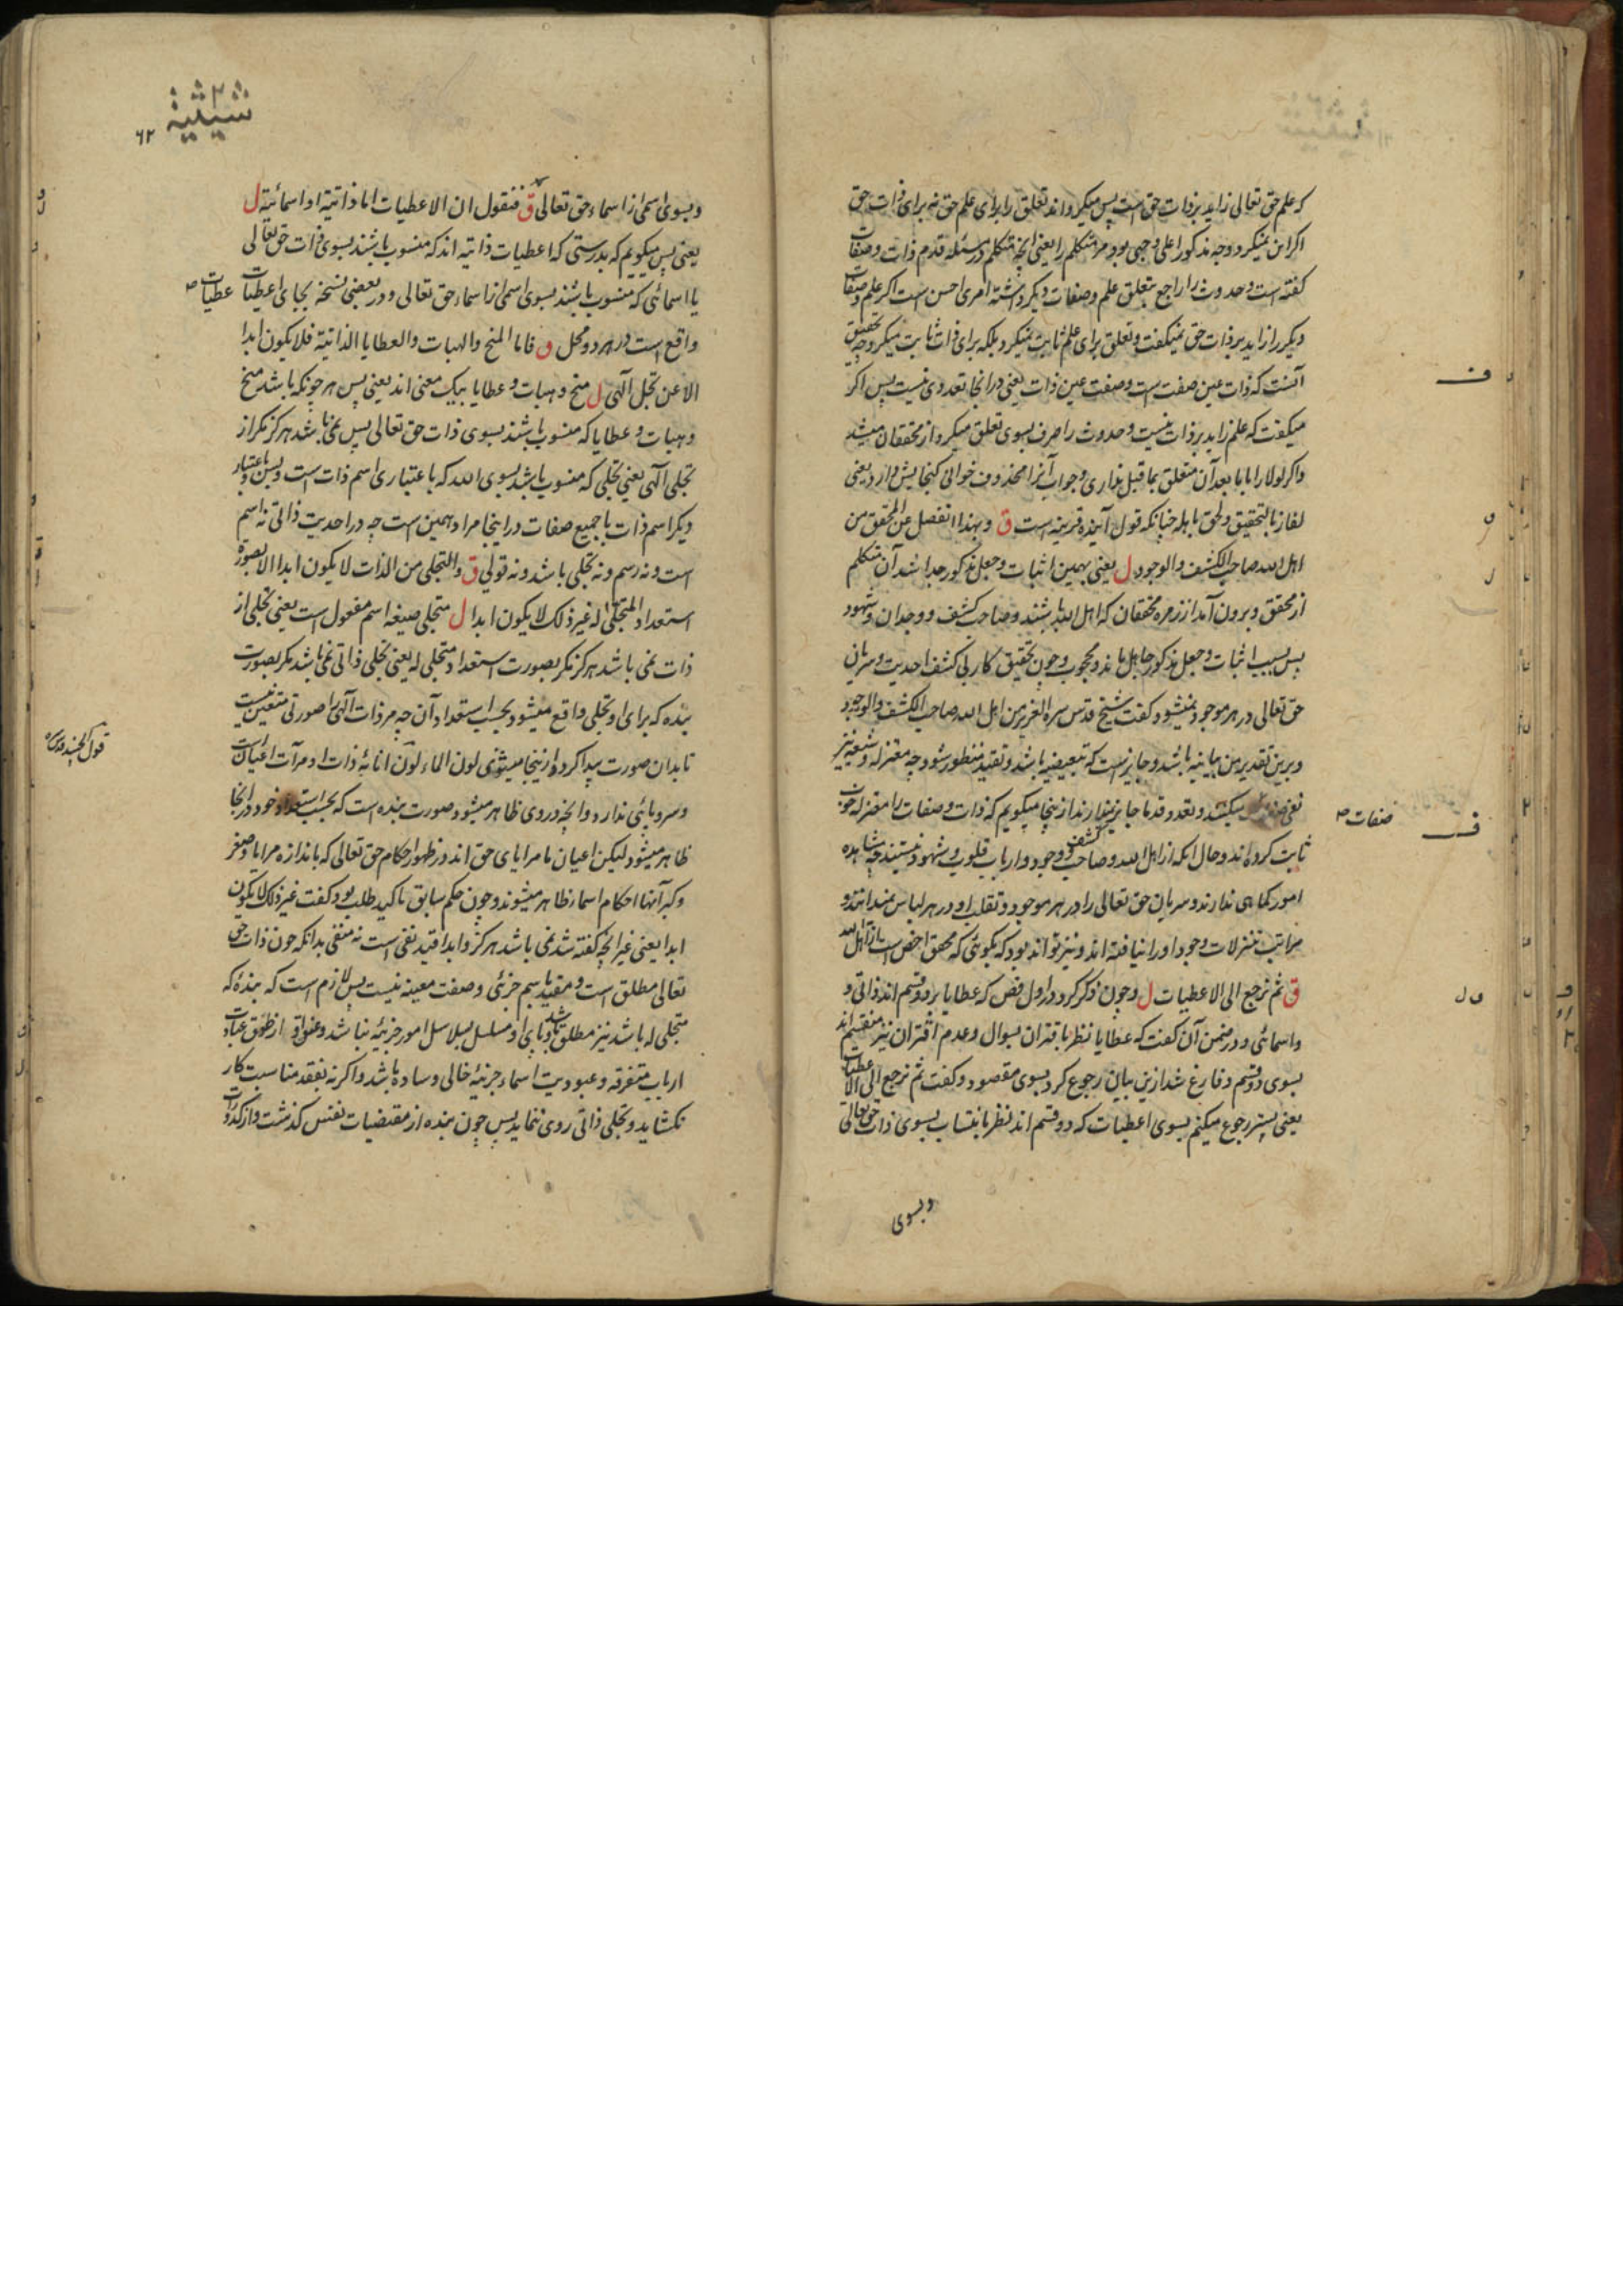 که علم حق تعالی زاید بر ذات حق است پس میکرداند تعلق را برای علم حق نه برای ذات حق
اکر این نمیکرد وجه مذکور اعلی وجهی بود مر متکلم را یعنی آنچه متکلم در مسئله قدم ذات و صفات
کفته است و حدوث را راجع بتعلق علم و صفات دیکر داشته امری احسن است اکر علم و صفات
دیکر را زاید بر ذات حق نمیکفت و تعلق برای علم ثابت نمیکرد بلکه برای ذات ثابت میکرد چه تحقیق
آنست که ذات عین صفت است و صفت عین ذات یعنی در آنجا تعددی نیست پس اکر
میکفت که علم زاید بر ذات نیست و حدوث را صرف بسوی تعلق میکرد از محققان میشد
واکر لولا را با ما بعد آن متعلق بما قبل نداری و جواب آنرا محذوف خوانی کنجایش دارد یعنی
لفاز بالتحقیق ولحق باهله چنانکه قول آینده قرینه است ق وبهذا انفصل عن المحقق من
اهل الله صاحب الکشف والوجود ل یعنی بهمین اثبات و جعل مذکور جدا شد آن متکلم
از محقق و برون آمد از زمره محققان که اهل الله باشند و صاحب کشف و وجدان و شهود
پس بسبب اثبات و جعل مذکور جاهل ماند و محجوب و چون تحقیق کار بی کشف احدیت و سریان
حق تعالی در هر موجود نمیشود کفت شیخ قدس سره العزیز من اهل الله صاحب الکشف والوجود
و برین تقدیر من بیانیه باشد و جایز است که تبعیضیه باشد و تقیید منظور شود چه معتزله و شیعه نیز
نفی صفات میکنند و تعدد قدما جایز نمیدارند از ینجا میکویم که ذات و صفات را معتزله خوب
صفات صح
ثابت کرده اند و حال آنکه از اهل الله و صاحب کشف و وجود و ارباب قلوب و شهود نیستند چه مشاهده
امور کماهی ندارند و سریان حق تعالی را در هر موجود و تقلب او در هر لباس نمیدانند و
مراتب تنزلات وجود او را نیافته اند و نیز تواند بود که بکوئی که محقق اخص است از اهل الله
ق ثم نرجع الی الاعطیات ل و چون ذکر کرد در اول فص که عطایا بر دو قسم اند ذاتی و
واسمائی و در ضمن آن کفت که عطایا نظر باقتران بسوال و عدم اقتران نیز منقسم اند
بسوی دو قسم و فارغ شد ازین بیان رجوع کرد بسوی مقصود و کفت ثم نرجع الی الاعطیات
یعنی پستر رجوع میکنم بسوی اعطیات که دو قسم اند نظر بانتساب بسوی ذات حق تعالی
و بسوی
شیثیه
۶۲
و بسوی اسمی از اسماء حق تعالی ق فنقول ان الاعطیات اما ذاتیة او اسمائیة ل
یعنی پس میکویم که بدرستی که اعطیات ذاتیه اند که منسوب باشند بسوی ذات حق تعالی
یا اسمائی که منسوب باشند بسوی اسمی از اسماء حق تعالی و در بعضی نسخه بجای اعطیات عطیات صح
واقع است در هر دو محل ق فاما المنح والهبات والعطایا الذاتیة فلا یکون ابدا
الا عن تجل آلهی ل منح و هبات و عطایا بیک معنی اند یعنی پس هر چونکه باشد منح
و هبات و عطایا که منسوب باشند بسوی ذات حق تعالی پس نمی باشد هرکز مکر از
تجلی آلهی یعنی تجلی که منسوب باشد بسوی الله که باعتباری اسم ذات است و بس و باعتبار
دیکر اسم ذات با جمیع صفات در اینجا مراد همین است چه در احدیت ذاتی نه اسم
است و نه رسم و نه تجلی باشد و نه قولی ق والتجلی من الذات لا یکون ابدا الا بصورة
استعداد المتجلی له غیر ذلک لا یکون ابدا ل متجلی صیغه اسم مفعول است یعنی تجلی از
ذات نمی باشد هرکز مکر بصورت استعداد متجلی له یعنی تجلی ذاتی نمی باشد مکر بصورت
بنده که برای او تجلی واقع میشود بحسب استعداد آن چه مر ذات آلهی را صورتی متعین نیست
تا بدان صورت پیدا کردد از ینجا میشنوی لون الماء لون انائه ذات او مرآت اعیان است
قول الجنید قدس سره
و سر و پائی ندارد و آنچه در وی ظاهر میشود صورت بنده است که بحسب استعداد خود در آنجا
ظاهر میشود لیکن اعیان ما مرایای حق اند در ظهور احکام حق تعالی که باندازه مرایا و صغر
و کبر آنها احکام اسماء ظاهر میشوند و چون حکم سابق تاکید طلب بود کفت غیر ذلک لا یکون
ابدا یعنی غیر آنچه کفته شد نمی باشد هرکز و ابدا قید نفی است نه منفی بدانکه چون ذات حق
تعالی مطلق است و مقید باسم جزئی و صفت معینه نیست پس لازم است که بنده که
متجلی له باشد نیز مطلق باشد و پای او مسلسل بسلاسل امور جزئیه نباشد و عنق او از طوق عبادت
ارباب متفرقه و عبودیت اسماء جزئیه خالی و ساده باشد واکر نه بفقد مناسبت کار
نکشاید و تجلی ذاتی روی ننماید پس چون بنده از مقتضیات نفس کذشت و از کدورات